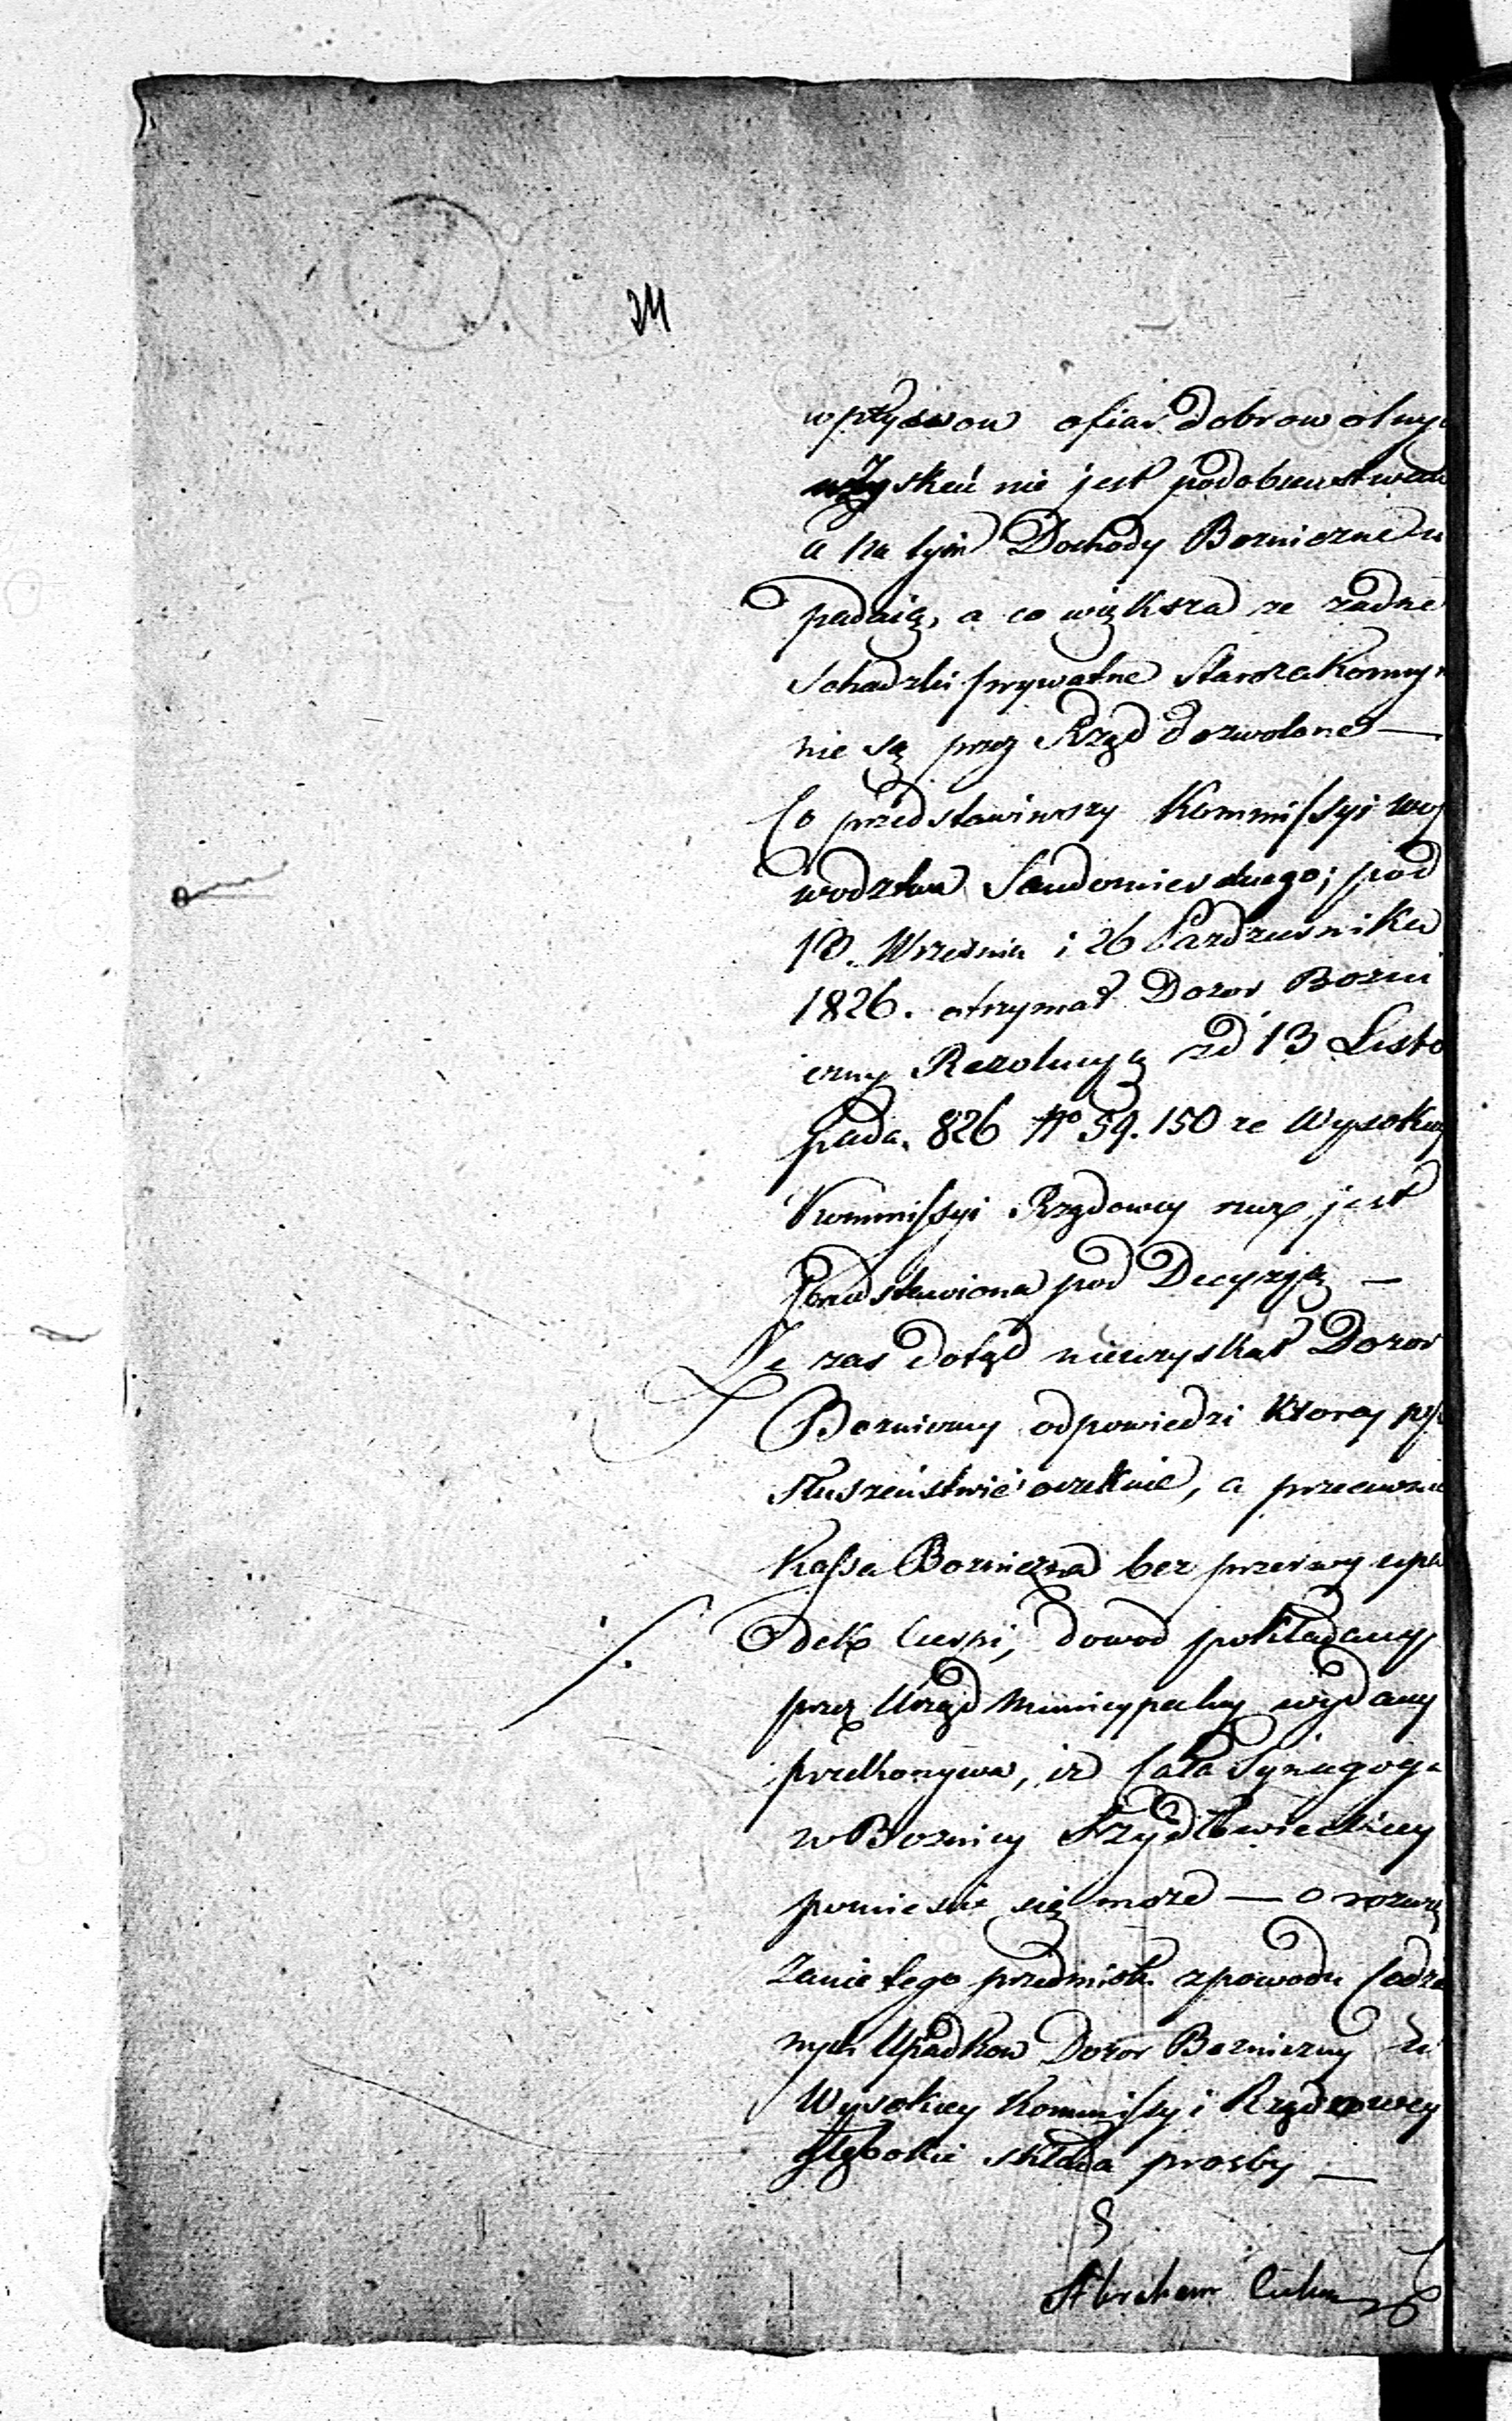 wpływow ofiar dobrowolny
uzyskać nie jest podobieństwem
a na tym Dochody Bożniczne u
padaią, a co większa ze żadne
Schadzki prywatne Starozakonny
nie są przez Rząd dozwolone —
Co przedstawiwszy Kommissyi Woj
wodztwa Sandomierskiego; pod
18. Września i 26 Pazdziernika
1826. otrzymał Dozor Bożni
czny Rezolucyą zd 13 Listo
pada. 826 No 59.150 ze Wysokiey
Kommissyi Rządowey rzecz jest
Przedstawiona pod Decyzyą —
Ze zas dotąd nieuzyskał Dozor
Bożniczny odpowiedzi Ktorey po
słuszeństwie oczekuie, a przeciwnie
Kassa Bożniczna bez przerwy upa
dek cierpi, dowod pokładany
przez Urząd Municypalny wydany
przekonywa, iz Cała Synagoga
w Boznicy Szydłowieckiey
pomiescić się może — o rozwią
zanie tego przedmiotu z powodu Codzie
nych Upadkow Dozor Bożniczny do
Wysokiey Kommissyi Rządowey
głębokie składa prosby —
Abraham